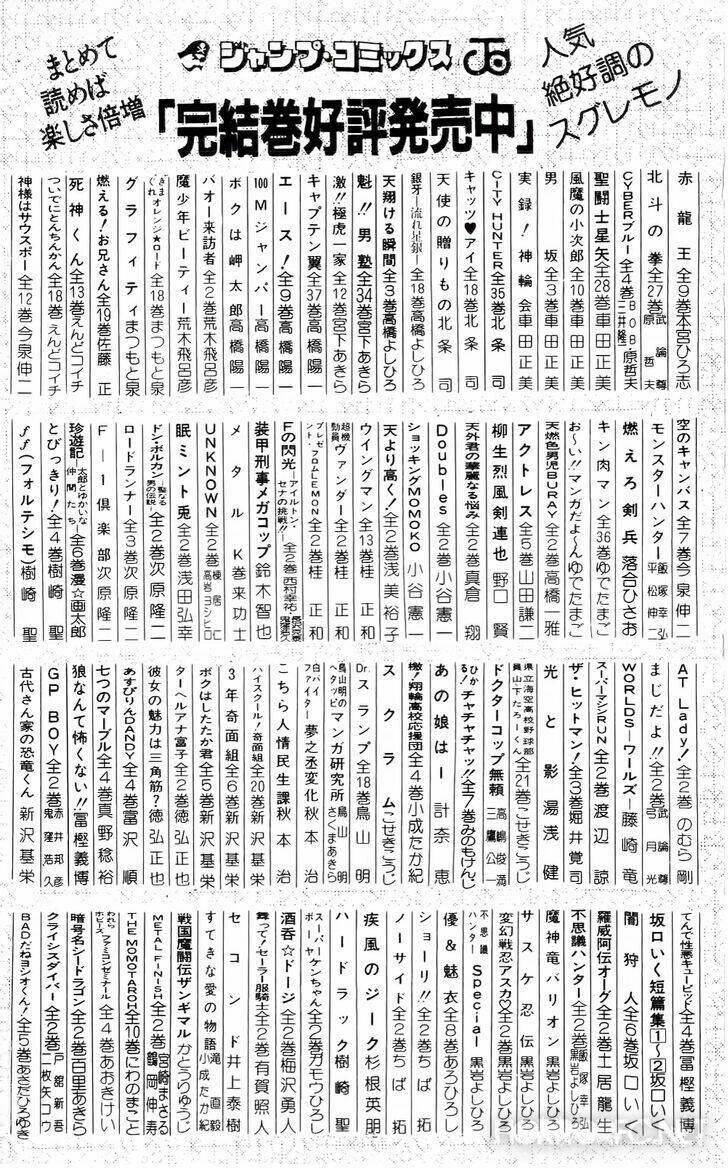 まとめて
読めば
楽しさ倍増
ジャンプ・コミックス
人気
絶好調の
スグレモノ
「完結巻好評発売中」
赤龍王全9巻本宮ひろ志
北斗の拳全27巻武論尊 原哲夫
CYBERブルー全4巻BOB 三井隆一 原哲夫
聖闘士星矢全28巻車田正美
風魔の小次郎全10巻車田正美
男坂全3巻車田正美
実録!神輪会車田正美
CITY HUNTER全35巻北条司
キャッツ♥アイ全18巻北条司
天使の贈りもの北条司
銀牙―流れ星 銀―全18巻高橋よしひろ
天翔ける瞬間全3巻高橋よしひろ
魁!!男塾全34巻宮下あきら
激!!極虎一家全12巻宮下あきら
キャプテン翼全37巻高橋陽一
エース!全9巻高橋陽一
100Mジャンパー高橋陽一
ボクは岬太郎高橋陽一
バオー来訪者全2巻荒木飛呂彦
魔少年ビーティー荒木飛呂彦
きまぐれオレンジ★ロード全18巻まつもと泉
グラフィティまつもと泉
燃える!お兄さん全19巻佐藤正
死神くん全13巻えんどコイチ
ついでにとんちんかん全18巻えんどコイチ
神様はサウスポー全12巻今泉伸二
空のキャンバス全7巻今泉伸二
モンスターハンター飯塚幸弘 平松伸二
燃えろ剣兵落合ひさお
キン肉マン全36巻ゆでたまご
お〜い!!マンガだよ〜んゆでたまご
天燃色男児BURAY全2巻高橋一雅
アクトレス全5巻山田謙二
柳生烈風剣連也野口賢
天外君の華麗なる悩み全2巻真倉翔
Doubles全2巻小谷憲一
ショッキングMOMOKO小谷憲一
天より高く!全2巻浅美裕子
ウイングマン全13巻桂正和
超機動員ヴァンダー全2巻桂正和
プレゼント・フロムLEMON全2巻桂正和
Fの閃光―アイルトン・セナの挑戦!!―全2巻西村幸祐
装甲刑事メガコップ鈴木智也
メタルK巻来功士
UNKNOWN全2巻棟居仁 高岩ヨシヒロ
眠兎全2巻浅田弘幸
ドン・ボルカン―聖なる男の伝説―全2巻次原隆二
ロードランナー全3巻次原隆二
F―1倶楽部次原隆二
珍遊記―太郎とゆかいな仲間たち―全6巻漫☆画太郎
とびっきり!全4巻樹崎聖
ff(フォルテシモ)樹崎聖
AT Lady!全2巻のむら剛
まじだよ!!全2巻武論尊 弓月光
WORLDS―ワールズ―藤崎竜
スーパーマシンRUN全2巻渡辺諒
ザ・ヒットマン!全3巻堀井覚司
光と影湯浅健
県立海空高校野球部員山下たろーくん全21巻こせきこうじ
ドクターコップ無頼高嶋俊満 三鷹公一
ひかる!チャチャチャッ!!全7巻みのもけんじ
あの娘は―計奈恵
檄!翔輪高校応援団全4巻小成たか紀
スクラムこせきこうじ
Dr.スランプ全18巻鳥山明
鳥山明のヘタッピマンガ研究所鳥山明 さくまあきら
白バイファイター夢之丞変化秋本治
こちら人情民生課秋本治
ハイスクール!奇面組全20巻新沢基栄
3年奇面組全6巻新沢基栄
ボクはしたたか君全5巻新沢基栄
ターヘルアナ富子全2巻徳弘正也
彼女の魅力は三角筋?徳弘正也
あすびりんDANDY全4巻富沢順
七つのマーブル全4巻真野稔裕
狼なんて怖くない!!冨樫義博
GP BOY全2巻赤井邦彦 鬼窪浩久
古代さん家の恐竜くん新沢基栄
てんで性悪キューピッド全4巻冨樫義博
坂口いく短篇集1〜2坂口いく
闇狩人全6巻坂口いく
羅威阿伝オーグ全2巻土居龍生
不思議ハンター全2巻飯塚幸弘 黒岩よしひろ
魔神竜バリオン黒岩よしひろ
サスケ忍伝黒岩よしひろ
変幻戦忍アスカ全2巻黒岩よしひろ
不思議ハンターSpecial黒岩よしひろ
優&魅衣全8巻あろひろし
ショーリ!!全2巻ちば拓
ノーサイド全2巻ちば拓
疾風のジーク杉根英朋
ハードラック樹崎聖
スーパーボーヤケンちゃん全2巻ガモウひろし
酒呑☆ドージ全2巻梅沢勇人
舞って!セーラー服騎士全2巻有賀照人
セコンド井上泰樹
すてきな愛の物語滝直毅 小成たか紀
戦国魔闘伝ザンギマルかとうりゅうじ
METAL FINISH全2巻宮崎まさる 鶴岡伸寿
THE MOMOTAROH全10巻にわのまこと
われらホビーズファミコンゼミナール全4巻あおきけい
暗号名シードラゴン全2巻百里あきら
クライシスダイバー全2巻戸舘新吾 二枚矢コウ
BADだねヨシオくん!全5巻あさだひろゆき